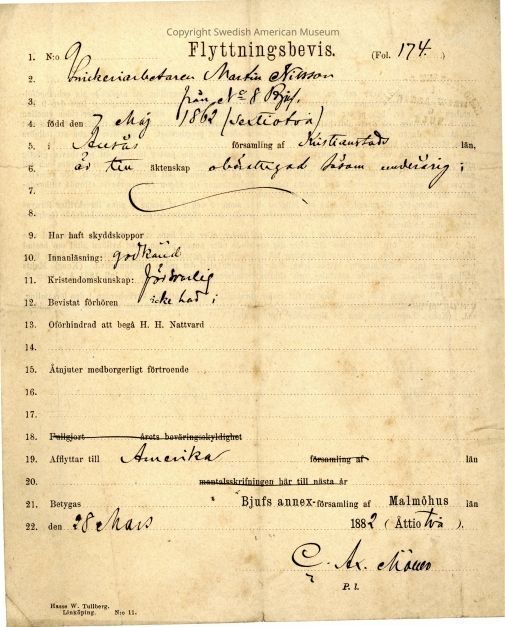 Copyright Swedish American Museum
Flyttningsbevis.
1. N:o 9 (Fol. 174. )
2. Snickeriarbetaren Martin Nilsson
3. från No 8 Bjuf.
4. född den 7 Maj 1862 (sextiotvå)
5. i församling af Kristianstads län,
6. är till äktenskap obesvärgad såsom underårig;
7.
8.
9. Har haft skyddskoppor
10. Innanläsning: godkänd
11. Kristendomskunskap: försvarlig
12. Bevistat förhören icke här;
13. Oförhindrad att begå H. H. Nattvard
14.
15. Åtnjuter medborgerligt förtroende
16.
17.
18. Fullgjort årets beväringsskyldighet
19. Afflyttar till Amerika församling af län
20. mantalsskrifningen här till nästa år
21. Betygas Bjufs annex-församling af Malmöhus län
22. den 28 Mars 1882 (Åttiotvå ).
C. Ax.
P. l.
Hasse W. Tullberg.
Linköping. N:o 11.